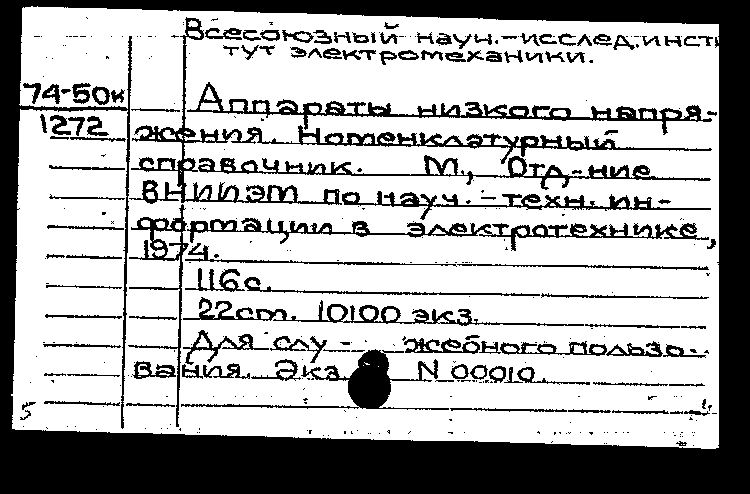 Всесоюзный науч.-исслед.инсти
тут электромеханики.
74-50к
1272
Аппараты низкого напря-
жения. Номенклатурный
справочник. М., Отд,-ние
ВНИИЭМ по науч.-техн. ин-
формации в электротехнике,
1974.
116 с.
22см. 10100 экз.
Для слу - жебного пользо-
вания. Экз N 00010.
5